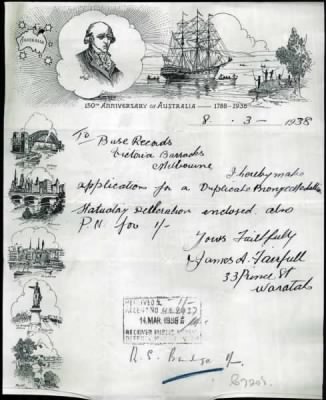 AUSTRALIA
150TH ANNIVERSARY OF AUSTRALIA — 1788-1938
8 . 3 - 1938
To Base Records
Victoria Barracks
Melbourne
I hereby make
application for a Duplicate Bronze Medallion
Statuday Decleration enclosed also
P.N. for 1/-
Yours Faithfully
James A. Fairfull
33 Prince St
Waratah
RECEIVED £ 1/-
RECEIPT NO
14 MAR 1938
RECEIVER PUBLIC
R. S. Badge